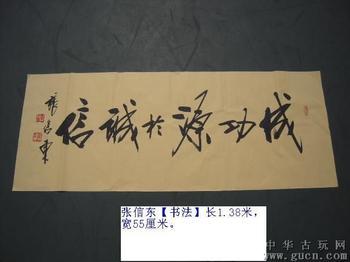 成功源於誠信
張信東
张信东【书法】长1.38米，
宽55厘米。
中华古玩网
www.gucn.com